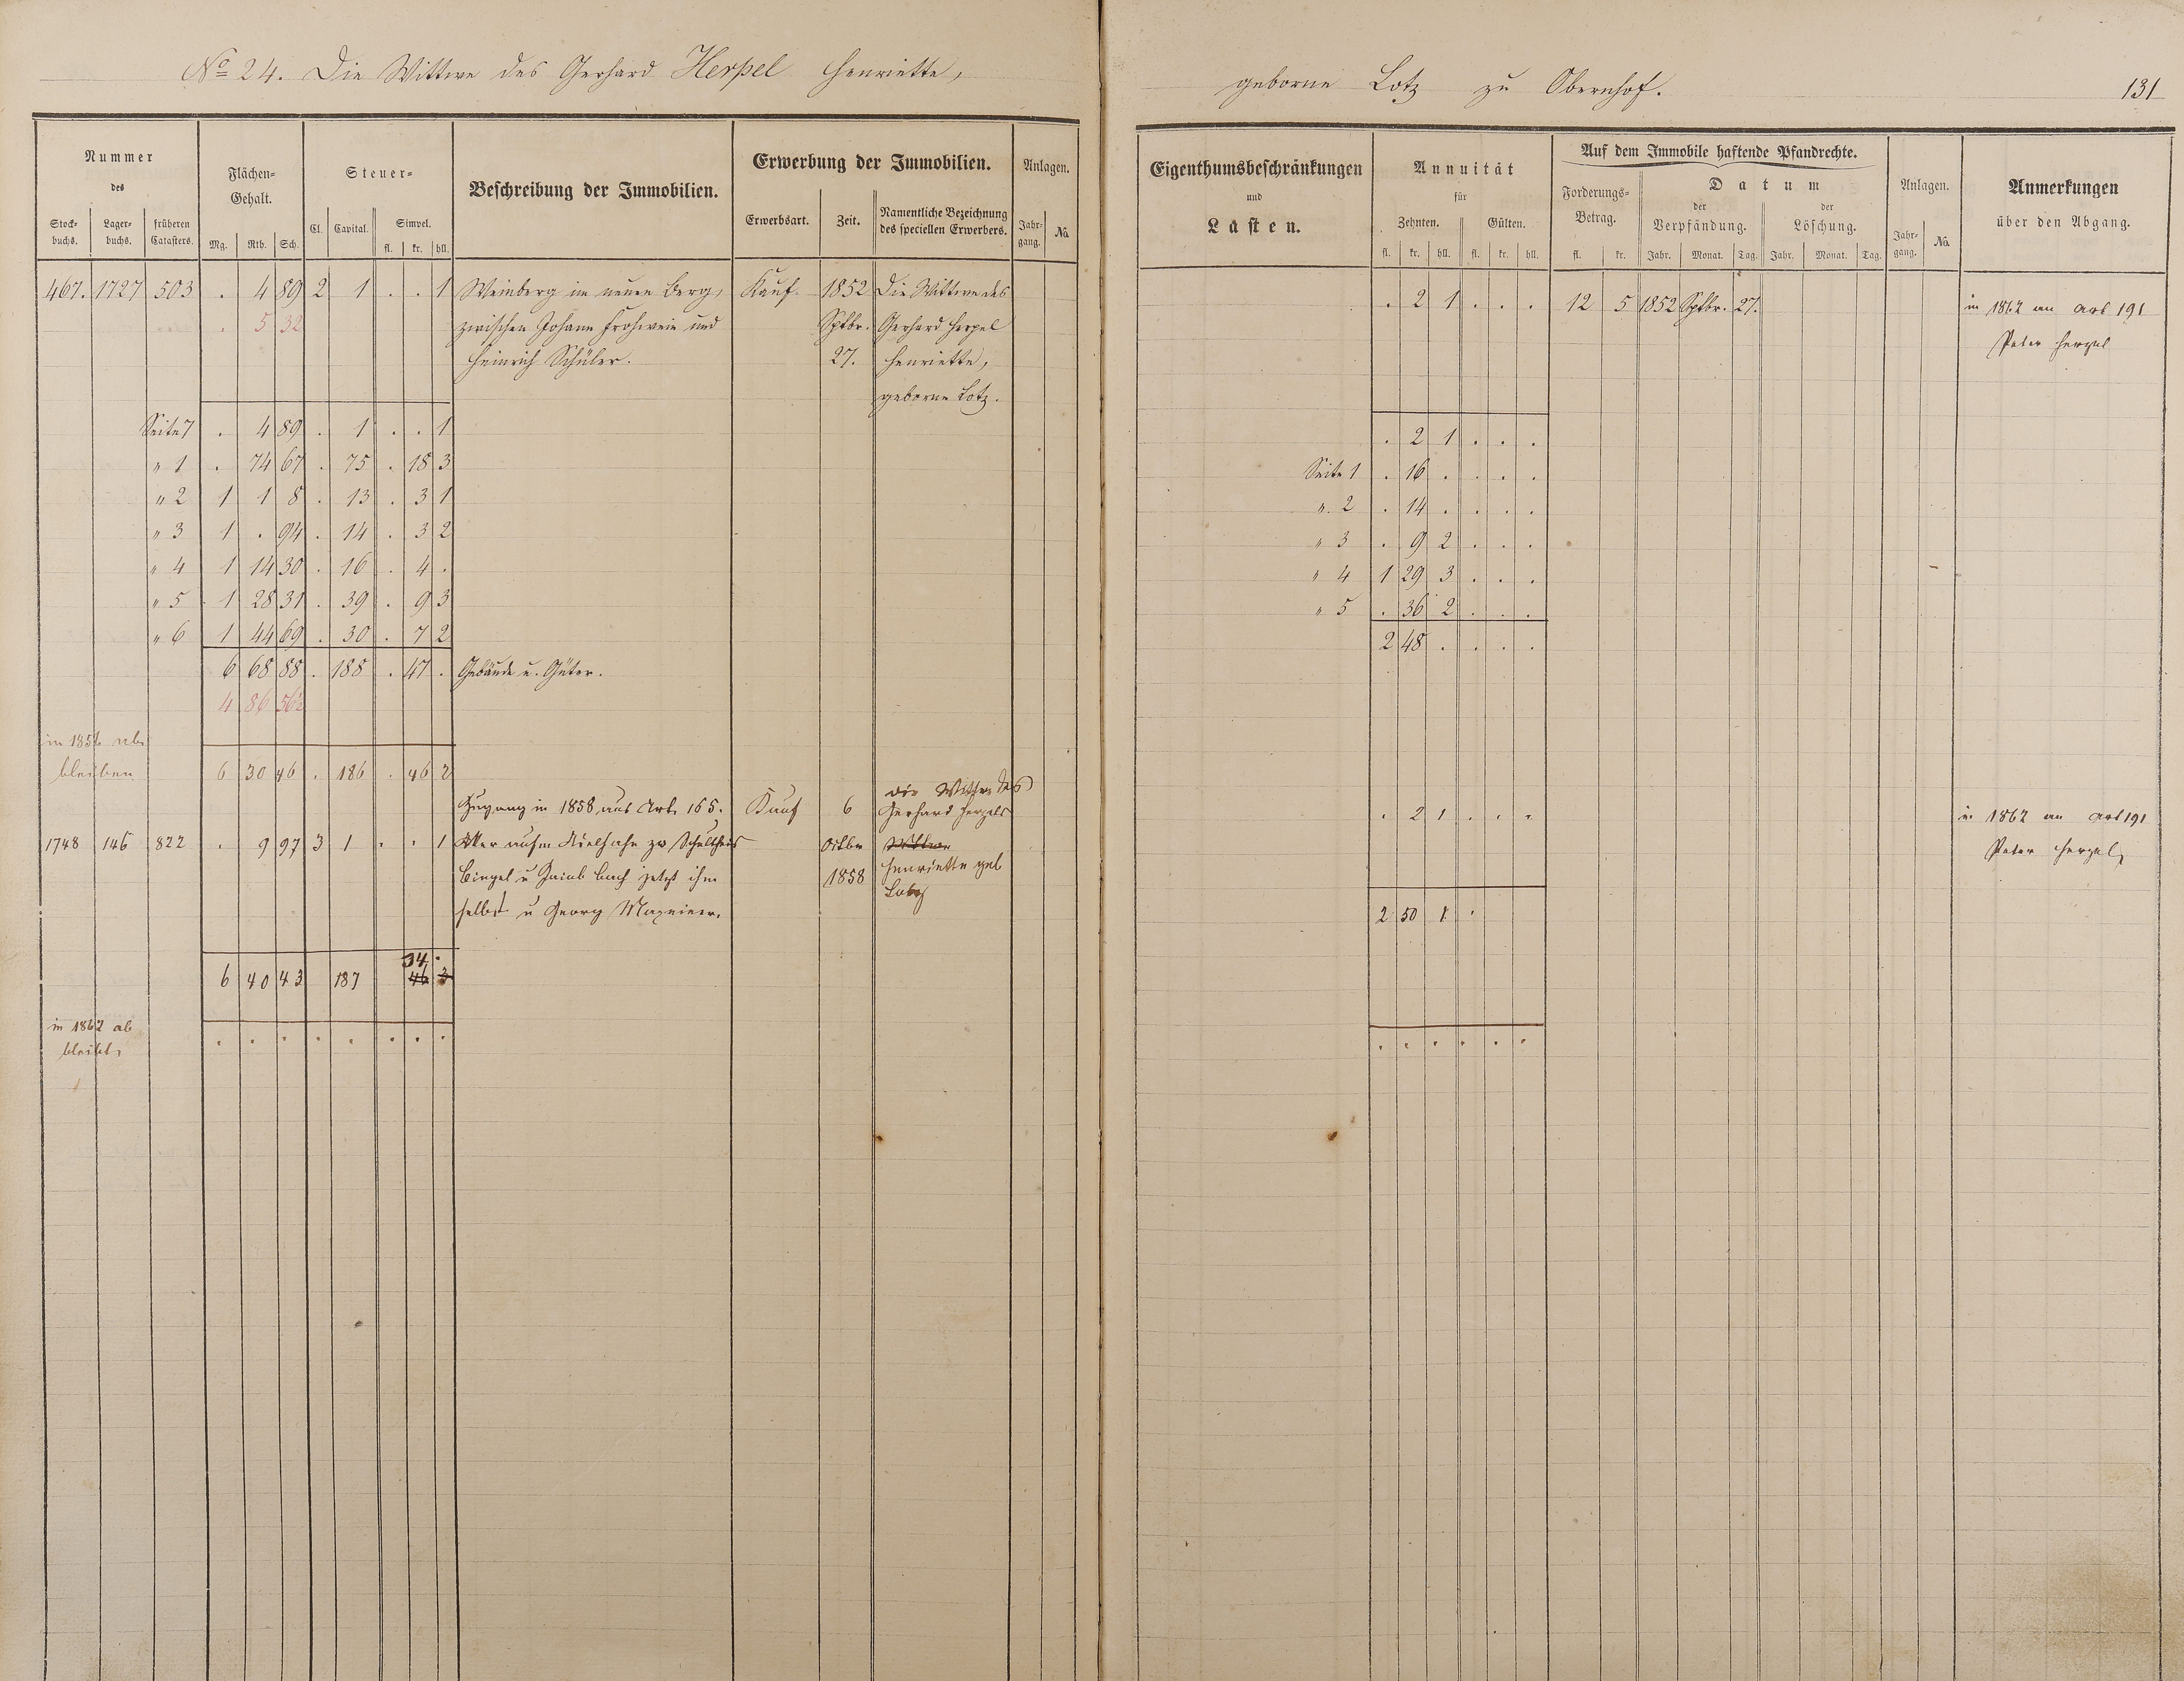 No 24. Die Wittwe des Gerhard Herpel Henriette,
geborne Lotz zu Obernhof.
131
Nummer
des
Stock-
buchs.
Lager-
buchs.
früheren
Catasters.
Flächen-
Gehalt.
Mg. Rth. Sch.
Steuer-
Cl. Capital. Simpel.
fl. kr. hll.
Beschreibung der Immobilien.
Erwerbung der Immobilien.
Erwerbsart. Zeit. Namentliche Bezeichnung
des speciellen Erwerbers.
Anlagen.
Jahr-
gang. No.
Eigenthumsbeschränkungen
und
Lasten.
Annuität
für
Zehnten. Gülten.
fl. kr. hll. fl. kr. hll.
Auf dem Immobile haftende Pfandrechte.
Forderungs-
Betrag.
fl. kr.
Datum
der
Verpfändung.
der
Löschung.
Jahr. Monat. Tag. Jahr. Monat. Tag.
Anlagen.
Jahr-
gang. No.
Anmerkungen
über den Abgang.
467. 1727 503 . 4 89 2 1 . . 1 Weinberg im neuen Berg, Kauf. 1852 Die Wittwe des
. 5 32 zwischen Johann Frohwein und Sptbr. Gerhard Herpel
Heinrich Schüler. 27. Henriette,
geborne Lotz.
. 2 1 . . . 12 5 1852 Sptbr. 27. in 1862 an Art 191
Peter Herpel
Seite 7 . 4 89 . 1 . . 1
" 1 . 74 67 . 75 . 18 3
" 2 1 1 8 . 13 . 3 1
" 3 1 . 94 . 14 . 3 2
" 4 1 14 30 . 16 . 4 .
" 5 1 28 31 . 39 . 9 3
" 6 1 44 69 . 30 . 7 2
6 68 88 . 188 . 47 . Gebäude u. Güter.
4 86 56½
. 2 1 . . .
Seite 1 . 16 . . . .
" 2 . 14 . . . .
" 3 . 9 2 . . .
" 4 1 29 3 . . .
" 5 . 36 2 . . .
2 48 . . . .
bleiben 6 30 46 . 186 . 46 2
Zugang in 1858 aus Art. 165. Kauf 6 die Wittwe des
Gerhard Herpels
1748 146 822 . 9 97 3 1 . . 1 Acker zw Schultheis Octbr Wittwe
Bingel u Jacob Bach jetzt ihm 1858 Henriette geb
selbst u Georg Lotz
. 2 1 . . . in 1862 an Art 191
Peter Herpel
2 50 1 .
34 .
6 40 43 187 46 3
in 1862 ab
bleibt, . . . . . . . .
. . . . . .